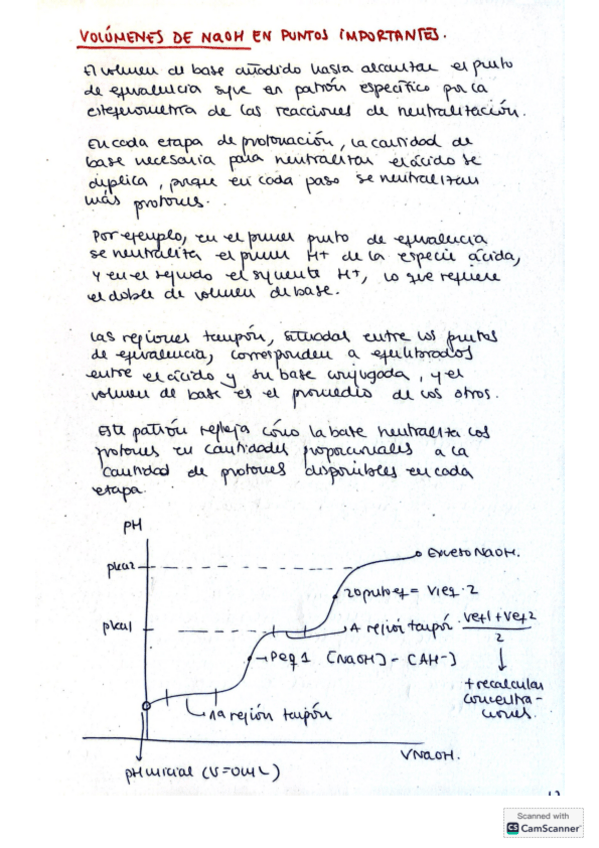 VOLÚMENES DE NaOH EN PUNTOS IMPORTANTES.
El volumen de base añadido hasta alcanzar el punto
de equivalencia sigue un patrón específico por la
estequiometría de las reacciones de neutralización.
En cada etapa de protonación, la cantidad de
base necesaria para neutralizar el ácido se
duplica, porque en cada paso se neutralizan
más protones.
Por ejemplo, en el primer punto de equivalencia
se neutraliza el primer H+ de la especie ácida,
y en el segundo el siguiente H+, lo que requiere
el doble de volumen de base.
Las regiones tampón, situadas entre los puntos
de equivalencia, corresponden a equilibrados
entre el ácido y su base conjugada, y el
volumen de base es el promedio de los otros.
Este patrón refleja cómo la base neutraliza los
protones en cantidades proporcionales a la
cantidad de protones disponibles en cada
etapa.
pH
Exceso NaOH.
pka2
2o pulo eq = V1eq · 2
pka1
A región tampón · Veq1 + Veq2
2
Peq 1 [NaOH] - [AH-]
+ recalcular
concentra-
ciones.
1a región tampón
VNaOH.
pH inicial (V=0mL)
Scanned with
CS CamScanner